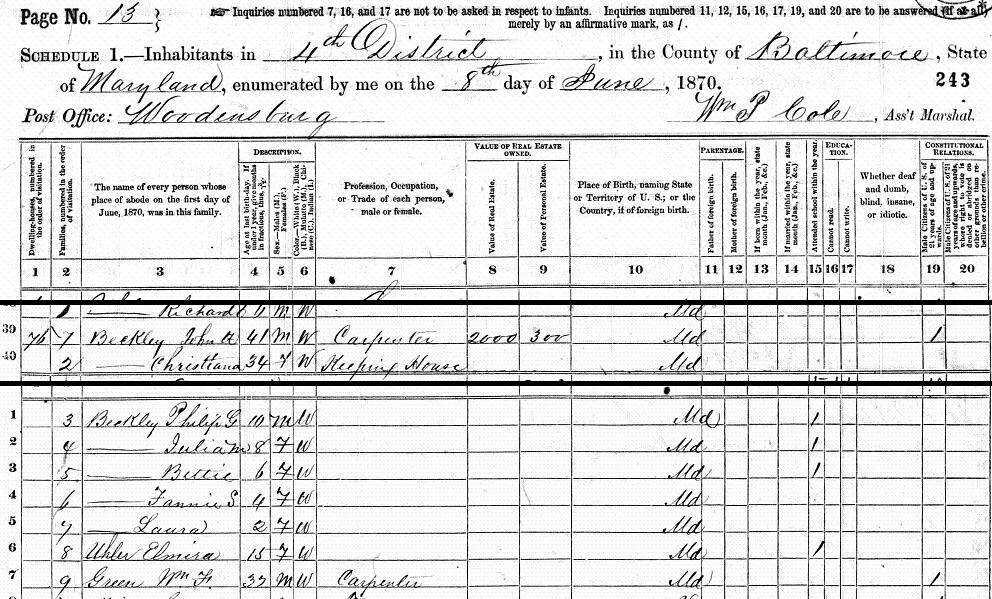 Page No. 13
Inquiries numbered 7, 16, and 17 are not to be asked in respect to infants. Inquiries numbered 11, 12, 15, 16, 17, 19, and 20 are to be answered (if at all)
merely by an affirmative mark, as /.
SCHEDULE 1.—Inhabitants in 4th District, in the County of Baltimore, State
of Maryland, enumerated by me on the 8th day of June, 1870.
243
Post Office: Woodensburg
Wm P Cole, Ass't Marshal.
Dwelling-houses, numbered in the order of visitation.
Families, numbered in the order of visitation.
The name of every person whose place of abode on the first day of June, 1870, was in this family.
DESCRIPTION.
Age at last birth-day. If under 1 year, give months in fractions, thus,
Sex.—Males (M.), Females (F.)
Color.—White (W.), Black (B.), Mulatto (M.), Chinese (C.), Indian (I.)
Profession, Occupation, or Trade of each person, male or female.
VALUE OF REAL ESTATE OWNED.
Value of Real Estate.
Value of Personal Estate.
Place of Birth, naming State or Territory of U. S.; or the Country, if of foreign birth.
PARENTAGE.
Father of foreign birth.
Mother of foreign birth.
If born within the year, state month (Jan., Feb., &c.)
If married within the year, state month (Jan., Feb., &c.)
Attended school within the year.
EDUCATION.
Cannot read.
Cannot write.
Whether deaf and dumb, blind, insane, or idiotic.
CONSTITUTIONAL RELATIONS.
Male Citizens of U. S. of 21 years of age and upwards.
Male Citizens of U. S. of 21 years of age and upwards, whose right to vote is denied or abridged on other grounds than rebellion or other crime.
1 2 3 4 5 6 7 8 9 10 11 12 13 14 15 16 17 18 19 20
1 —— Richard M W Md
39 76 7 Beckley John A 41 M W Carpenter 2000 300 Md 1
40 2 —— Christiana 34 F W Keeping House Md
1 3 Beckley Philip G 10 M W Md 1
2 4 —— Julia M 8 F W Md 1
3 5 —— Bettie 6 F W Md 1
4 6 —— Fannie S 4 F W Md
5 7 —— Laura 2 F W Md
6 8 Uhler Elmira 15 F W Md 1
7 9 Green Wm F. 32 M W Carpenter Md 1